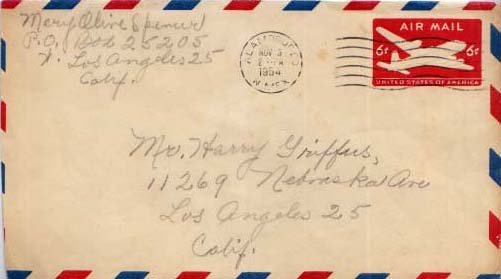 Mery Olive Spencer
P.O. Box 25205
W. Los Angeles 25
Calif.
ALAMOGORDO
NOV 3
2 PM
1954
N. MEX.
AIR MAIL
6¢ 6¢
UNITED STATES OF AMERICA
Mr. Harry Griffus,
11269 Nebraska Ave
Los Angeles 25
Calif.